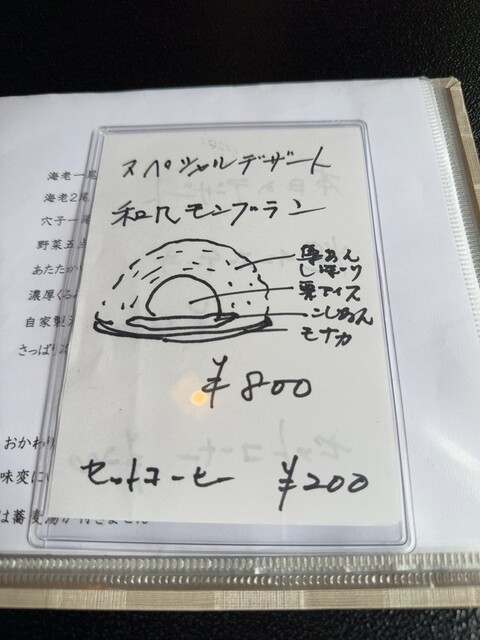 スペシャルデザート
和風モンブラン
しぼり
栗アイス
こしあん
モナカ
¥800
セットコーヒー ¥200
海老一尾
海老2尾
穴子一
野菜五
あたたか
濃厚くる
自家製
さっぱり
おかわり
味変に
は蕎麦湯が付きません